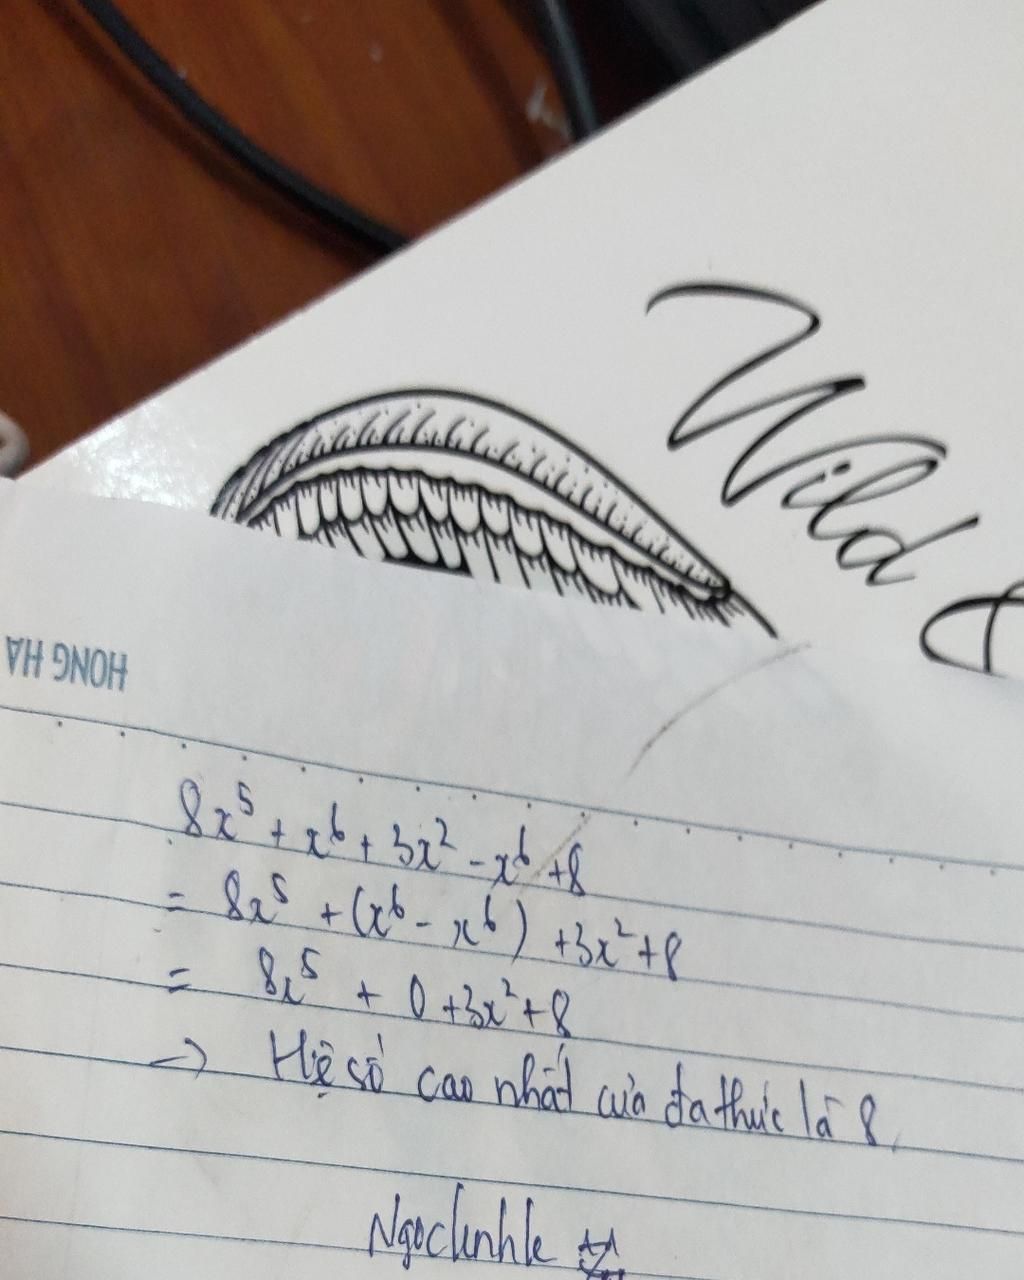 Wild
HONG HA
8x⁵ + x⁶ + 3x² - x⁶ + 8
= 8x⁵ + (x⁶ - x⁶) + 3x² + 8
= 8x⁵ + 0 + 3x² + 8
-> Hệ số cao nhất của đa thức là 8.
Ngoclinhle